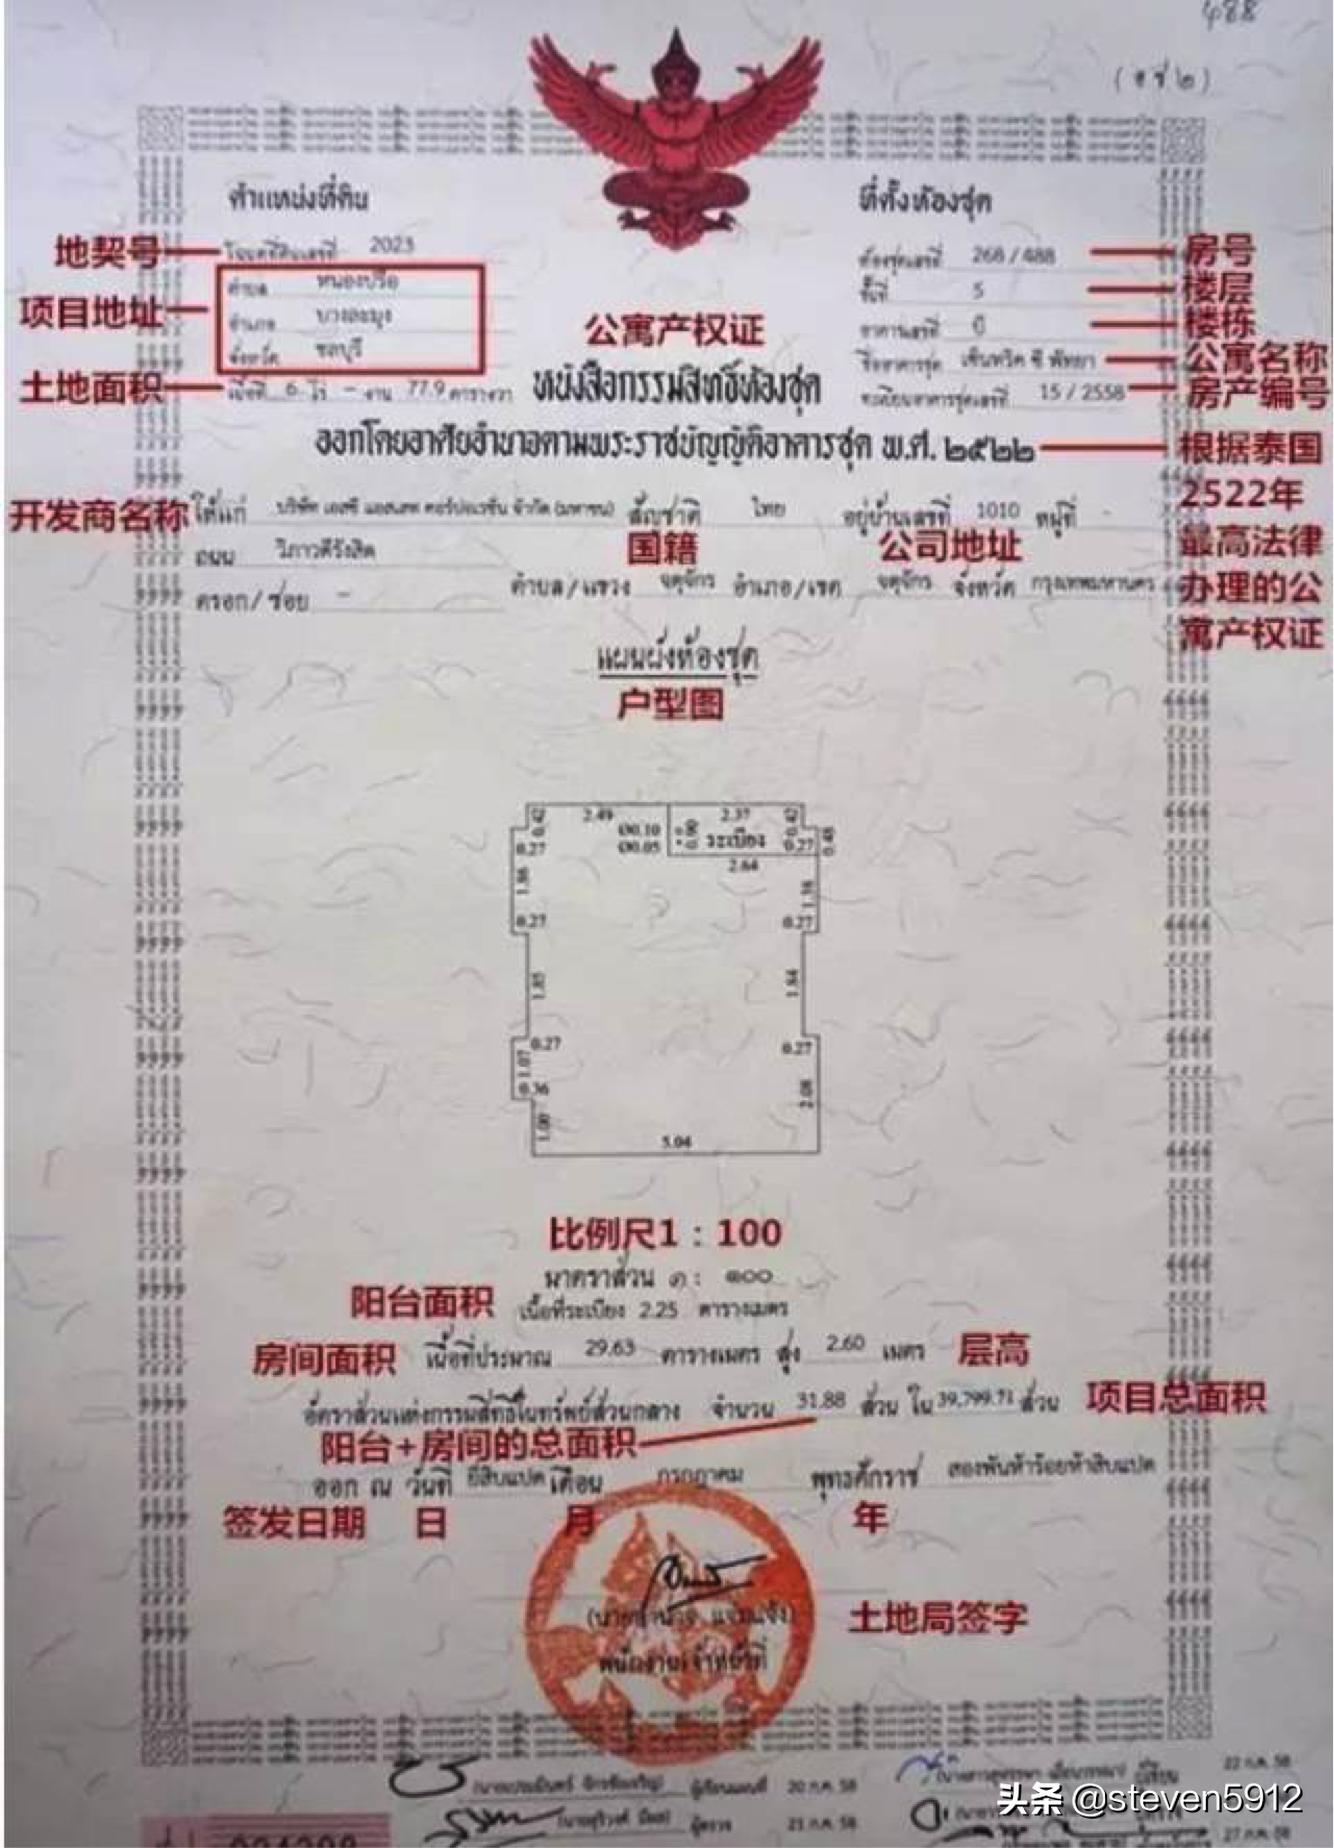 488
(อช ๒)
ตำแหน่งที่ดิน
ที่ตั้งห้องชุด
地契号 โฉนดที่ดินเลขที่ 2023
ห้องชุดเลขที่ 268 / 488 房号
项目地址 ตำบล หนองปรือ
ชั้นที่ 5 楼层
อำเภอ บางละมุง
อาคารเลขที่ บี 楼栋
จังหวัด ชลบุรี
公寓产权证
ชื่ออาคารชุด เซ็นทริค ซี พัทยา 公寓名称
土地面积 เนื้อที่ 6 ไร่ - งาน 77.9 ตารางวา
ทะเบียนอาคารชุดเลขที่ 15 / 2558 房产编号
หนังสือกรรมสิทธิ์ห้องชุด
ออกโดยอาศัยอำนาจตามพระราชบัญญัติอาคารชุด พ.ศ. ๒๕๒๒
根据泰国
2522年
最高法律
办理的公
寓产权证
开发商名称 ให้แก่ บริษัท เอสซี แอสเสท คอร์ปอเรชั่น จำกัด (มหาชน) สัญชาติ ไทย อยู่บ้านเลขที่ 1010 หมู่ที่ -
国籍 公司地址
ถนน วิภาวดีรังสิต
ตรอก/ซอย - ตำบล/แขวง จตุจักร อำเภอ/เขต จตุจักร จังหวัด กรุงเทพมหานคร
แผนผังห้องชุด
户型图
0.42 2.49 2.37 0.42
Ø0.10 0.90 ระเบียง 0.48
0.27 Ø0.05 0.27
2.64
1.86 1.36
0.27 0.27
1.85 1.84
0.27 0.27
1.07
0.36 2.08
1.00
5.04
比例尺1：100
มาตราส่วน ๑ : ๑๐๐
阳台面积 เนื้อที่ระเบียง 2.25 ตารางเมตร
房间面积 เนื้อที่ประมาณ 29.63 ตารางเมตร สูง 2.60 เมตร 层高
อัตราส่วนแห่งกรรมสิทธิ์ในทรัพย์ส่วนกลาง จำนวน 31.88 ส่วน ใน 39,799.71 ส่วน 项目总面积
阳台+房间的总面积
ออก ณ วันที่ ยี่สิบแปด เดือน กรกฎาคม พุทธศักราช สองพันห้าร้อยห้าสิบแปด
签发日期 日 月 年
土地局签字
พนักงานเจ้าหน้าที่
22 ก.ค. 58
ผู้เขียนแผนที่ 20 ก.ค. 58
ผู้ตรวจ 21 ก.ค. 58
27 ก.ค. 58
头条 @steven5912